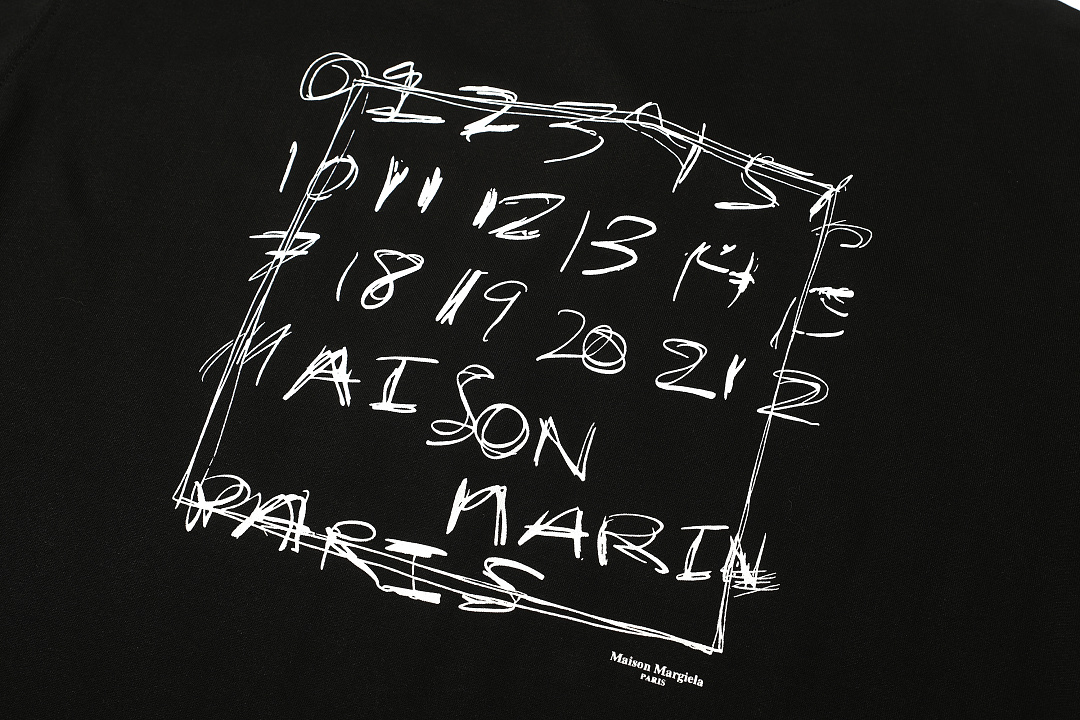 0 1 2 3 4 5
10 11 12 13 14
7 18 19 20 21 2
MAISON
MARIN
PARIS
Maison Margiela
PARIS